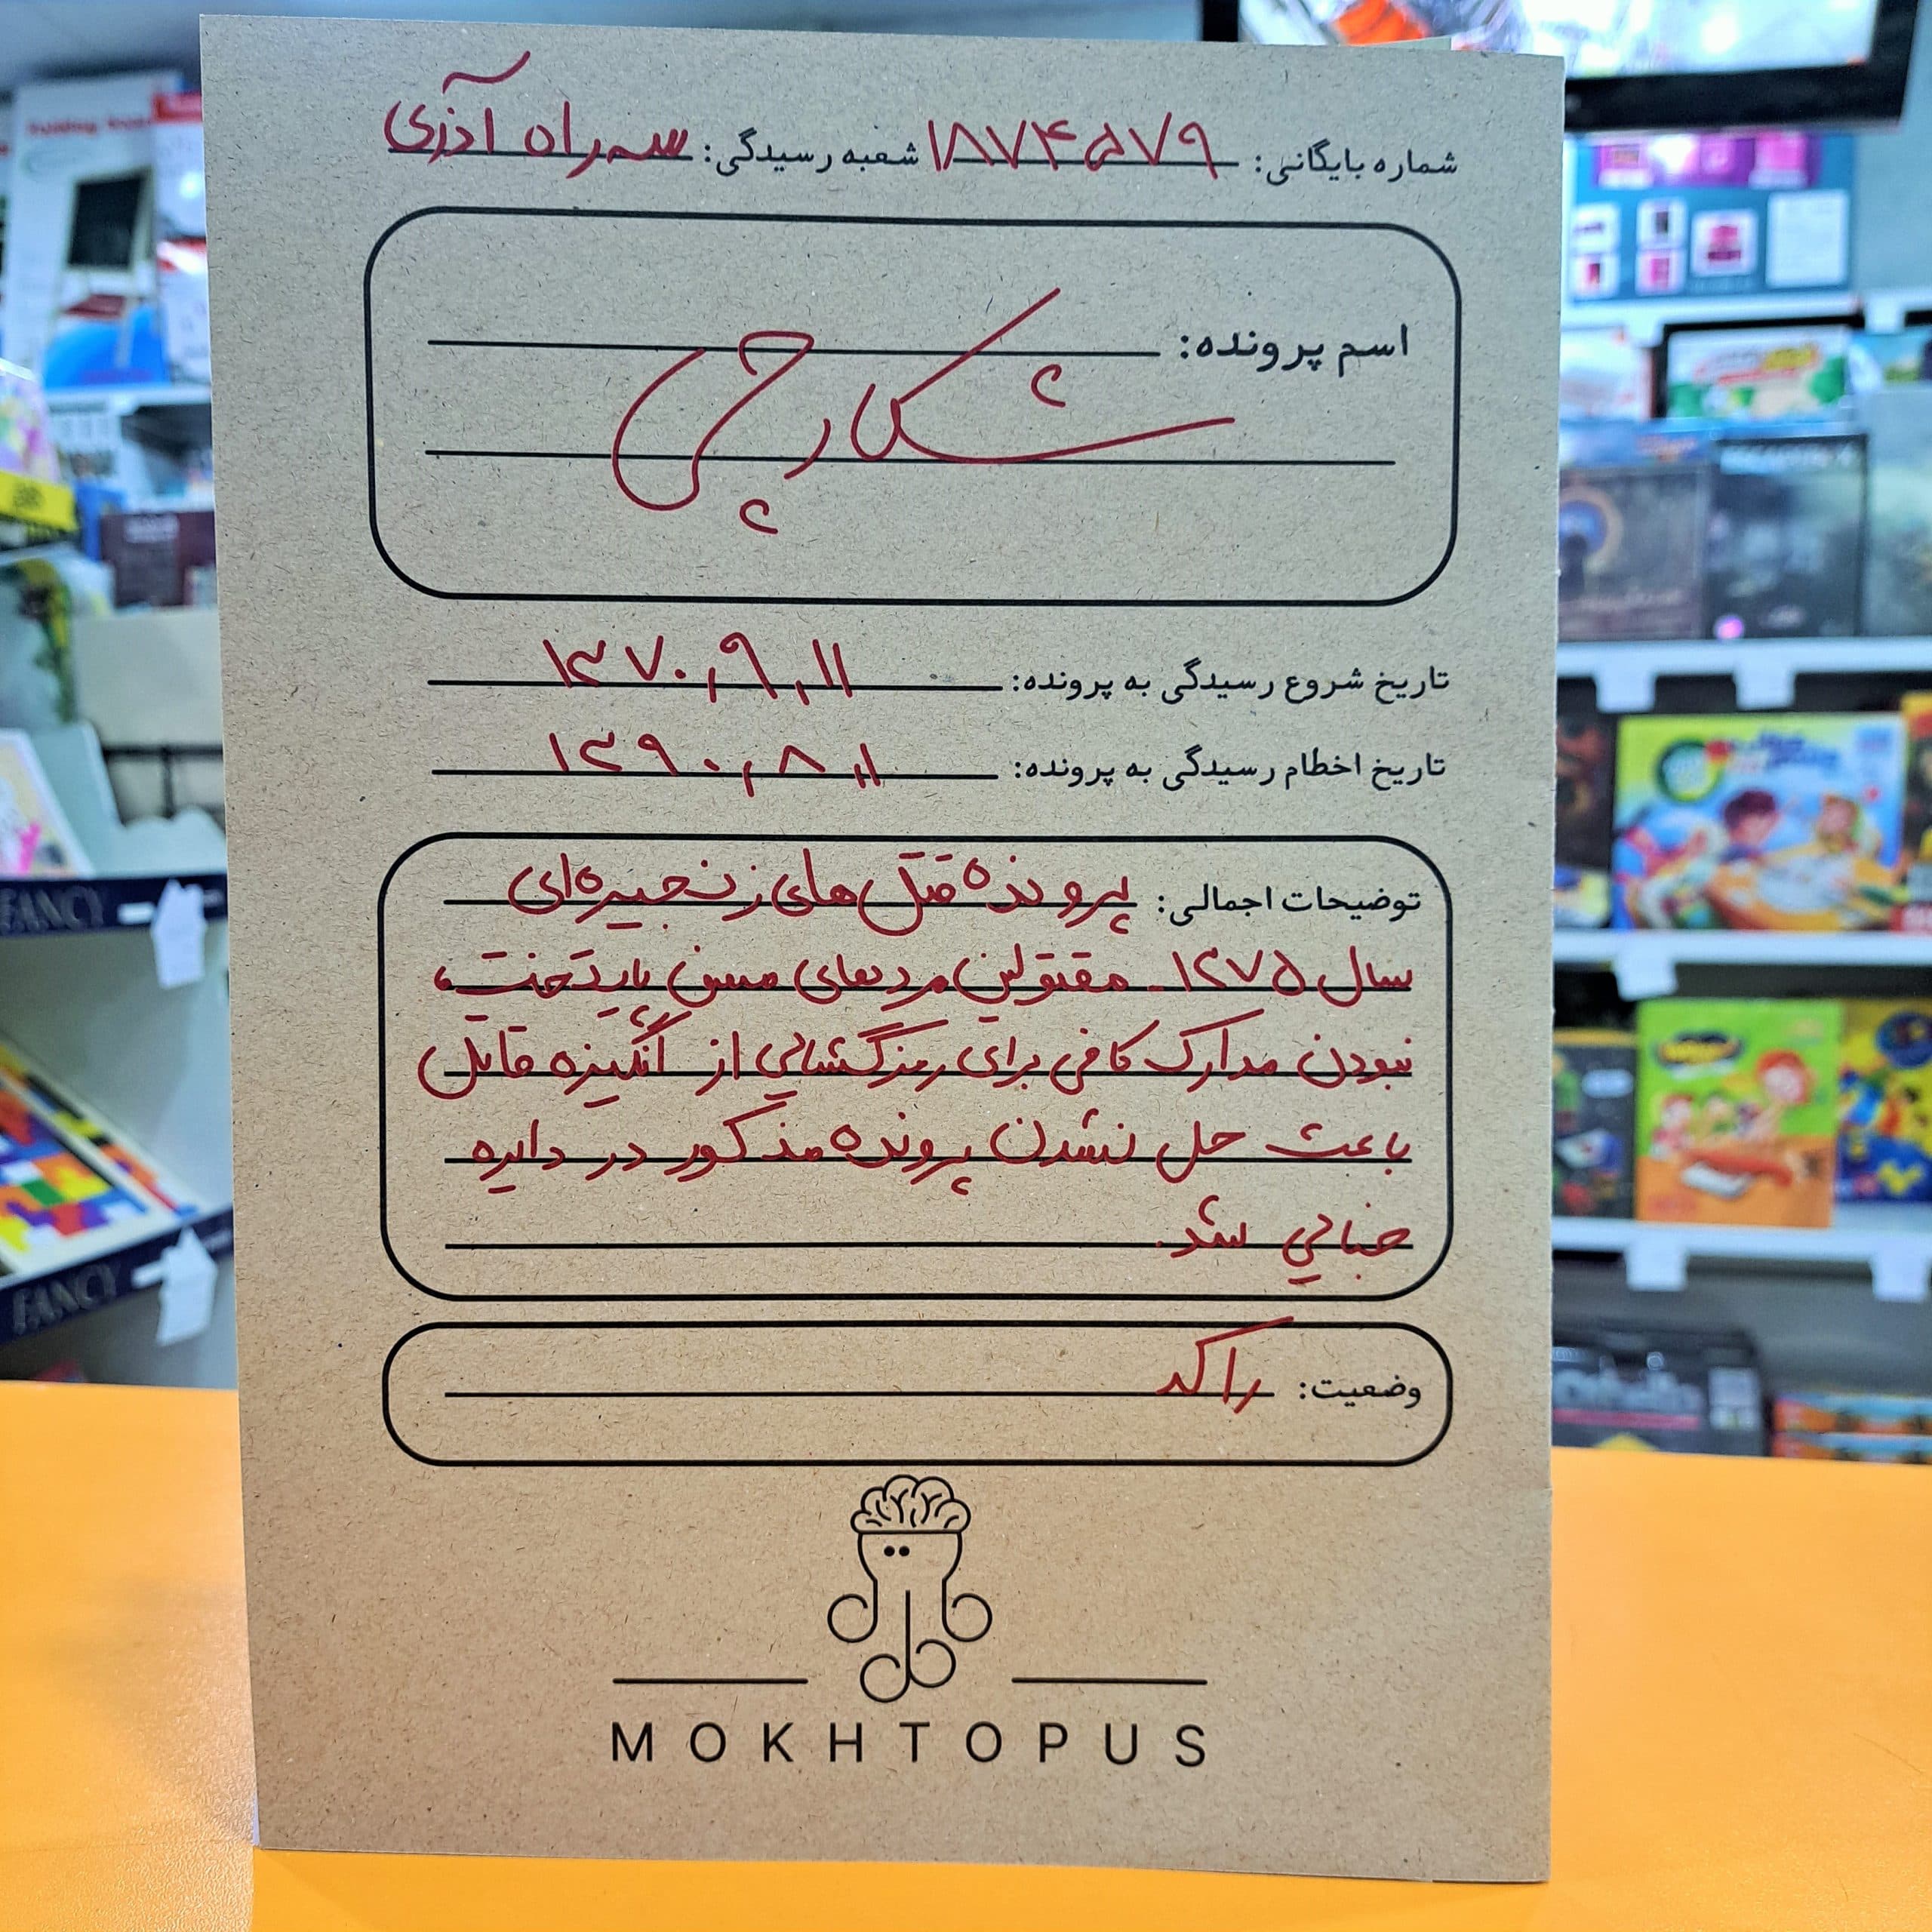 شماره بایگانی: ۱۸۷۴۵۷۹ شعبه رسیدگی: سه راه آذری
اسم پرونده:
شکارچی
تاریخ شروع رسیدگی به پرونده: ۱۳۷۰,۹,۱۱
تاریخ اخطام رسیدگی به پرونده: ۱۳۹۰,۸,۱
توضیحات اجمالی: پرونده قتل های زنجیره ای
سال ۱۳۷۵ - مقتولین مردهای مسن پایتخت،
نبودن مدارک کافی برای رمزگشایی از انگیزه قاتل
باعث حل نشدن پرونده مذکور در دایره
جنایی شد.
وضعیت: راکد
MOKHTOPUS
FANCY
FANCY